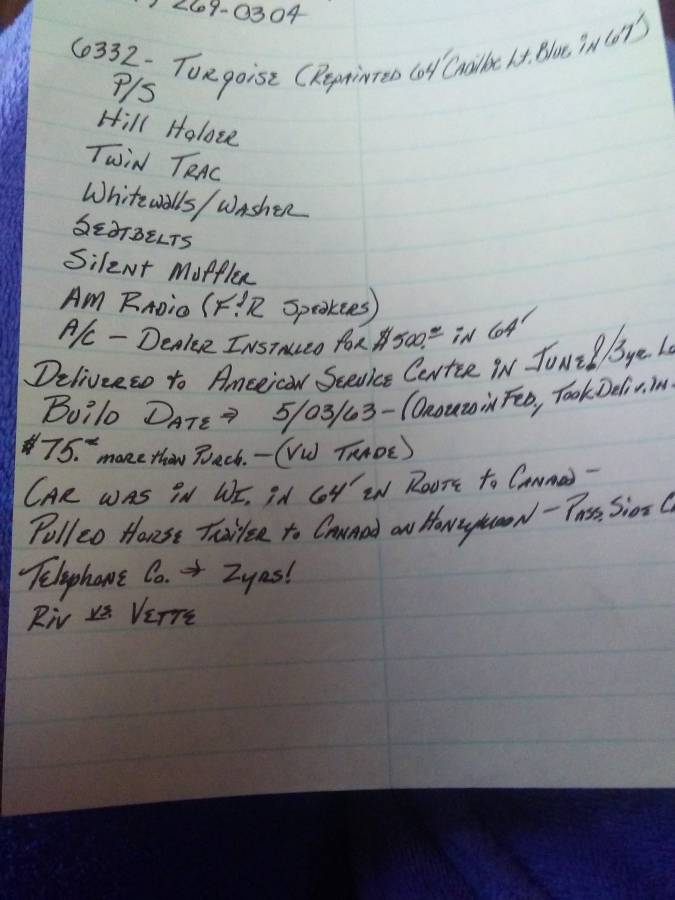 269-0304
6332- Turqoise (Repainted 64' Cadillac Lt. Blue in 67')
P/S
Hill Holder
Twin Trac
Whitewalls/Washer
Seatbelts
Silent Muffler
AM Radio (F&R Speakers)
A/C - Dealer Installed for $500.= in 64'
Delivered to American Service Center in June!/3yr.
Build Date ⇒ 5/03/63 - (Ordered in Feb, Took Deliv. in
$75.= more than Purch. - (VW Trade)
Car was in WI. in 64' en Route to Canada -
Pulled Horse Trailer to Canada on Honeymoon - Pass. Side
Telephone Co. → 2yrs!
Riv vs. Vette